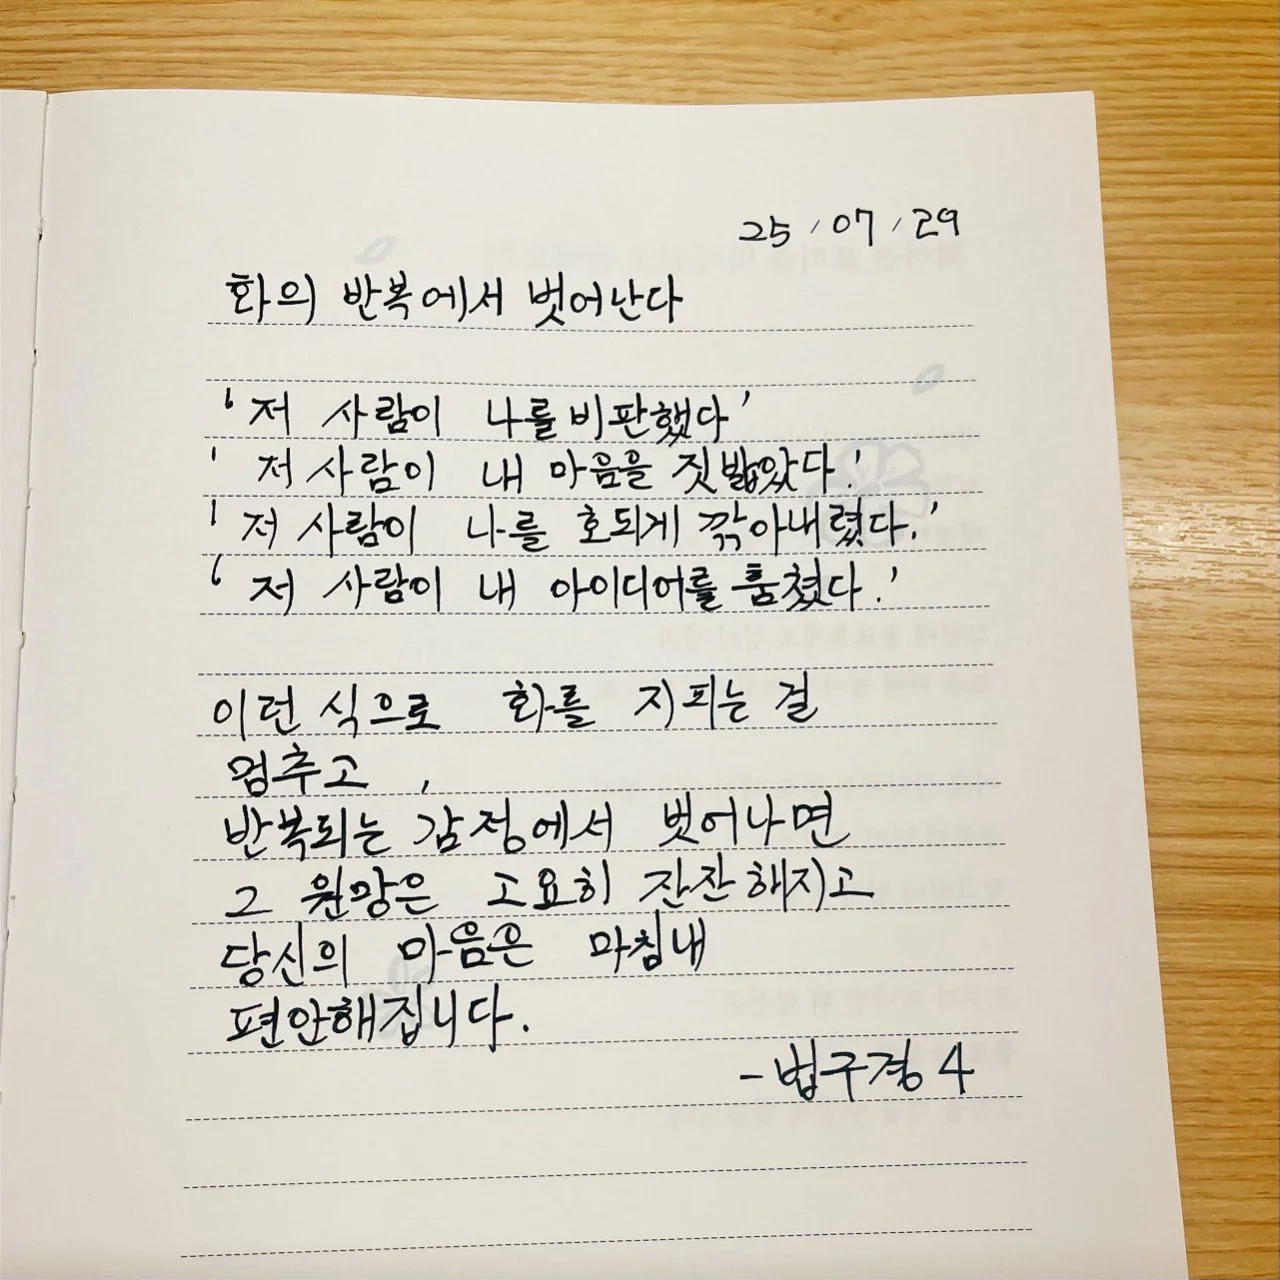 25/07/29
화의 반복에서 벗어난다
'저 사람이 나를 비판했다'
'저 사람이 내 마음을 짓밟았다.'
'저 사람이 나를 호되게 깎아내렸다.'
'저 사람이 내 아이디어를 훔쳤다.'
이런 식으로 화를 지피는 걸
멈추고,
반복되는 감정에서 벗어나면
그 원망은 고요히 잔잔해지고
당신의 마음은 마침내
편안해집니다.
- 법구경 4